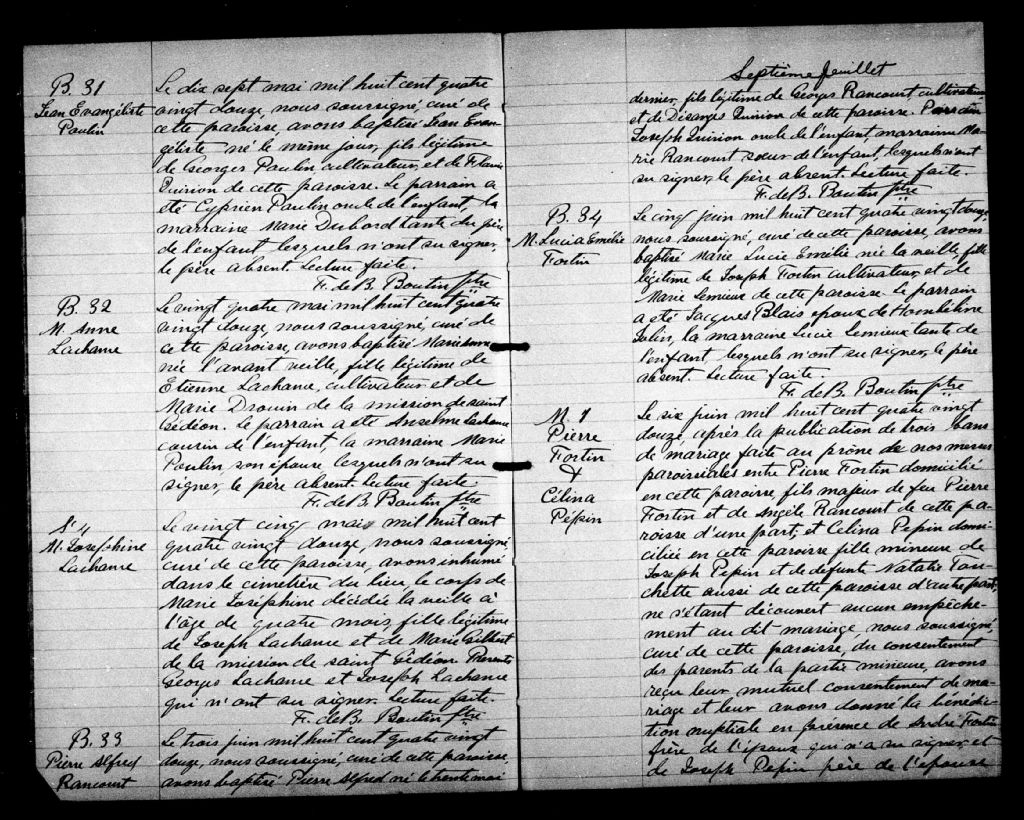 B. 31
Jean Evangéliste
Poulin
Le dix sept mai mil huit cent quatre
vingt douze, nous soussigné, curé de
cette paroisse, avons baptisé Jean Evan-
géliste né le même jour, fils légitime
de Georges Poulin, cultivateur, et de Flavie
Quirion de cette paroisse. Le parrain a
été Cyprien Poulin oncle de l'enfant la
marraine Marie Dubord tante du père
de l'enfant lesquels n'ont su signer,
le père absent. Lecture faite.
F. de B. Boutin ptre
B. 32
M. Anne
Lachance
Le vingt quatre mai mil huit cent quatre
vingt douze, nous soussigné, curé de
cette paroisse, avons baptisé Marie Anne
née l'avant veille, fille légitime de
Etienne Lachance, cultivateur et de
Marie Drouin de la mission de saint
Gédéon. Le parrain a été Anselme Lachance
cousin de l'enfant, la marraine Marie
Poulin son épouse lesquels n'ont su
signer, le père absent. Lecture faite.
F. de B. Boutin ptre
S. 4
M. Joséphine
Lachance
Le vingt cinq mai mil huit cent
quatre vingt douze, nous soussigné,
curé de cette paroisse, avons inhumé
dans le cimetière du lieu, le corps de
Marie Joséphine décédée la veille à
l'âge de quatre mois, fille légitime
de Joseph Lachance et de Marie Gilbert
de la mission de saint Gédéon. Présents
Georges Lachance et Joseph Lachance
qui n'ont su signer. Lecture faite.
F. de B. Boutin ptre
B. 33
Pierre Alfred
Rancourt
Le trois juin mil huit cent quatre vingt
douze, nous soussigné, curé de cette paroisse,
avons baptisé Pierre Alfred né le trente mai
Septième feuillet
dernier, fils légitime de Georges Rancourt cultivateur
et de Désanges Quirion de cette paroisse. Parrain
Joseph Quirion oncle de l'enfant, marraine Ma-
rie Rancourt soeur de l'enfant, lesquels n'ont
su signer, le père absent. Lecture faite.
F. de B. Boutin ptre
B. 34
M. Lucia Emélie
Fortin
Le cinq juin mil huit cent quatre vingt douze
nous soussigné, curé de cette paroisse, avons
baptisé Marie Lucie Emélie née la veille, fille
légitime de Joseph Fortin cultivateur, et de
Marie Lemieux de cette paroisse. Le parrain
a été Jacques Blais époux de Hombéline
la marraine Lucie Lemieux tante de
l'enfant lesquels n'ont su signer, le père
absent. Lecture faite.
F. de B. Boutin ptre
M. 7
Pierre
Fortin
&
Célina
Pépin
Le six juin mil huit cent quatre vingt
douze, après la publication de trois bans
de mariage faite au prône de nos messes
paroissiales entre Pierre Fortin domicilié
en cette paroisse, fils majeur de feu Pierre
Fortin et de Angèle Rancourt de cette pa-
roisse d'une part; et Celina Pepin domi-
ciliée en cette paroisse fille mineure de
Joseph Pepin et de defunte Natalie Tan-
chette aussi de cette paroisse d'autre part;
ne s'étant découvert aucun empêche-
ment au dit mariage, nous soussigné,
curé de cette paroisse, du consentement
des parents de la partie mineure, avons
reçu leur mutuel consentement de ma-
riage et leur avons donné la bénédic-
tion nuptiale en présence de André Fortin
frère de l'époux qui n'a su signer, et
de Joseph Pepin père de l'épouse